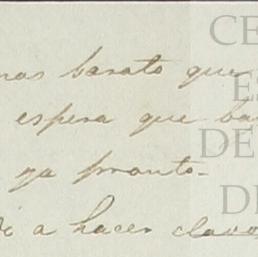 mas barato que
espera que ba
ya pronto.
a hacer clavo
CE
ES
DE
D